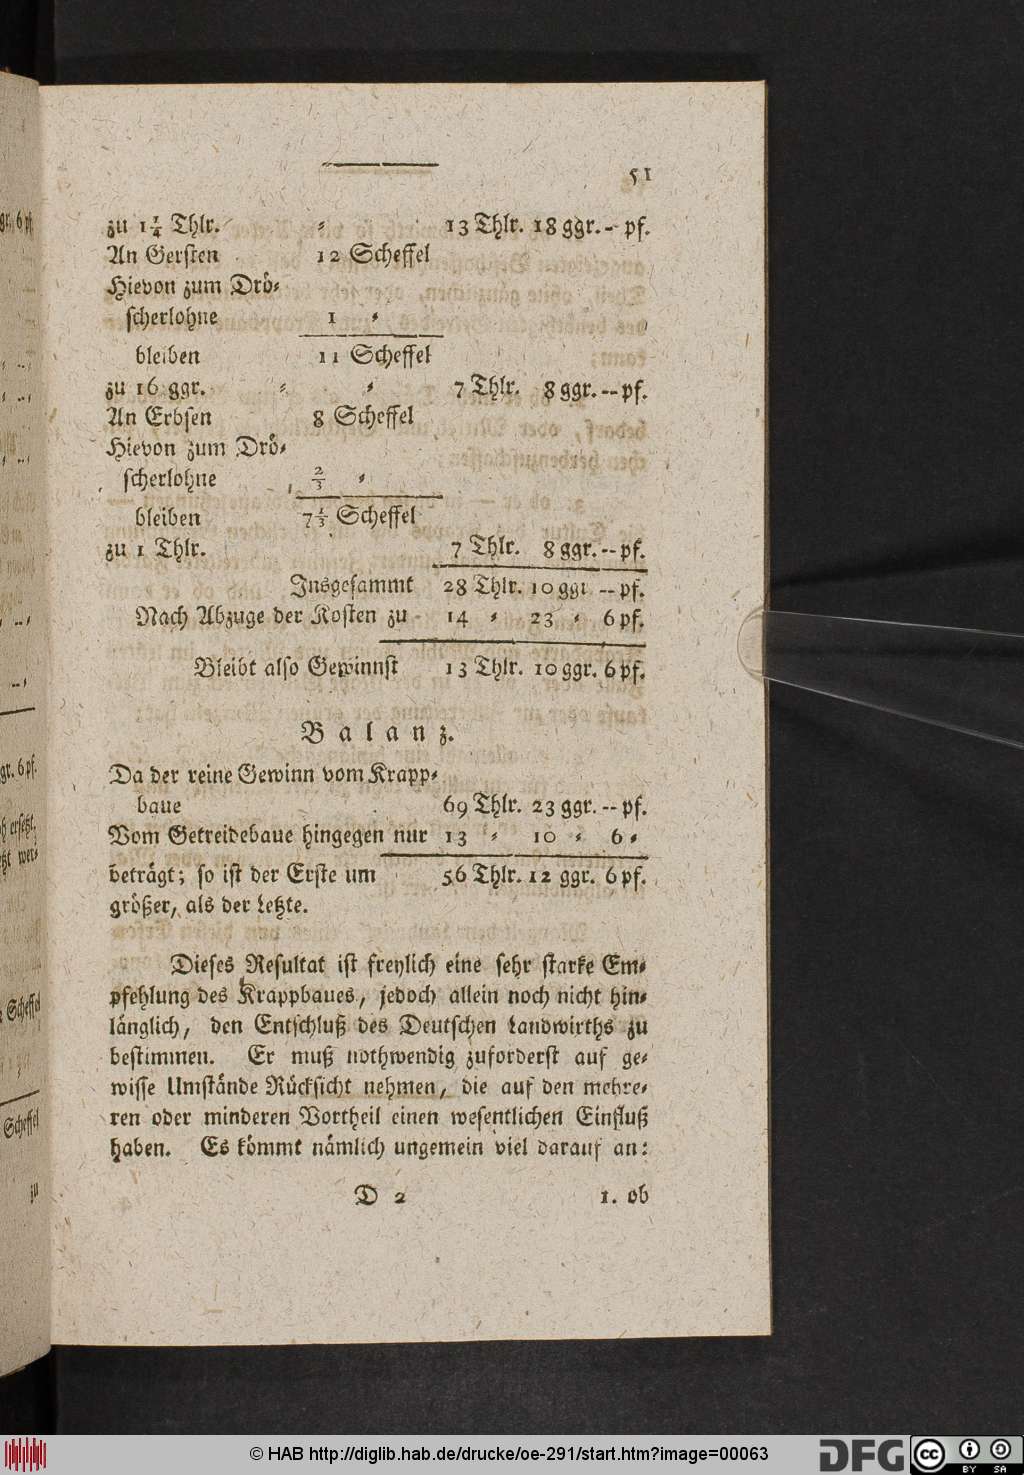 51
zu 1¼ Thlr. ⸗ 13 Thlr. 18 ggr. -- pf.
An Gersten 12 Scheffel
Hievon zum Drö⸗
scherlohne 1 ⸗
bleiben 11 Scheffel
zu 16 ggr. ⸗ ⸗ 7 Thlr. 8 ggr. -- pf.
An Erbsen 8 Scheffel
Hievon zum Drö⸗
scherlohne ⅔ ⸗
bleiben 7⅓ Scheffel
zu 1 Thlr. 7 Thlr. 8 ggr. -- pf.
Insgesammt 28 Thlr. 10 ggr -- pf.
Nach Abzuge der Kosten zu 14 ⸗ 23 ⸗ 6 pf.
Bleibt also Gewinnst 13 Thlr. 10 ggr. 6 pf.
Balanz.
Da der reine Gewinn vom Krapp⸗
baue 69 Thlr. 23 ggr. -- pf.
Vom Getreidebaue hingegen nur 13 ⸗ 10 ⸗ 6 ⸗
beträgt; so ist der Erste um 56 Thlr. 12 ggr. 6 pf.
größer, als der Letzte.
Dieses Resultat ist freylich eine sehr starke Em⸗
pfehlung des Krappbaues, jedoch allein noch nicht hin⸗
länglich, den Entschluß des Deutschen Landwirths zu
bestimmen. Er muß nothwendig zuforderst auf ge⸗
wisse Umstände Rücksicht nehmen, die auf den mehre⸗
ren oder minderen Vortheil einen wesentlichen Einfluß
haben. Es kömmt nämlich ungemein viel darauf an:
D 2 1. ob
© HAB http://diglib.hab.de/drucke/oe-291/start.htm?image=00063
DFG
cc BY SA